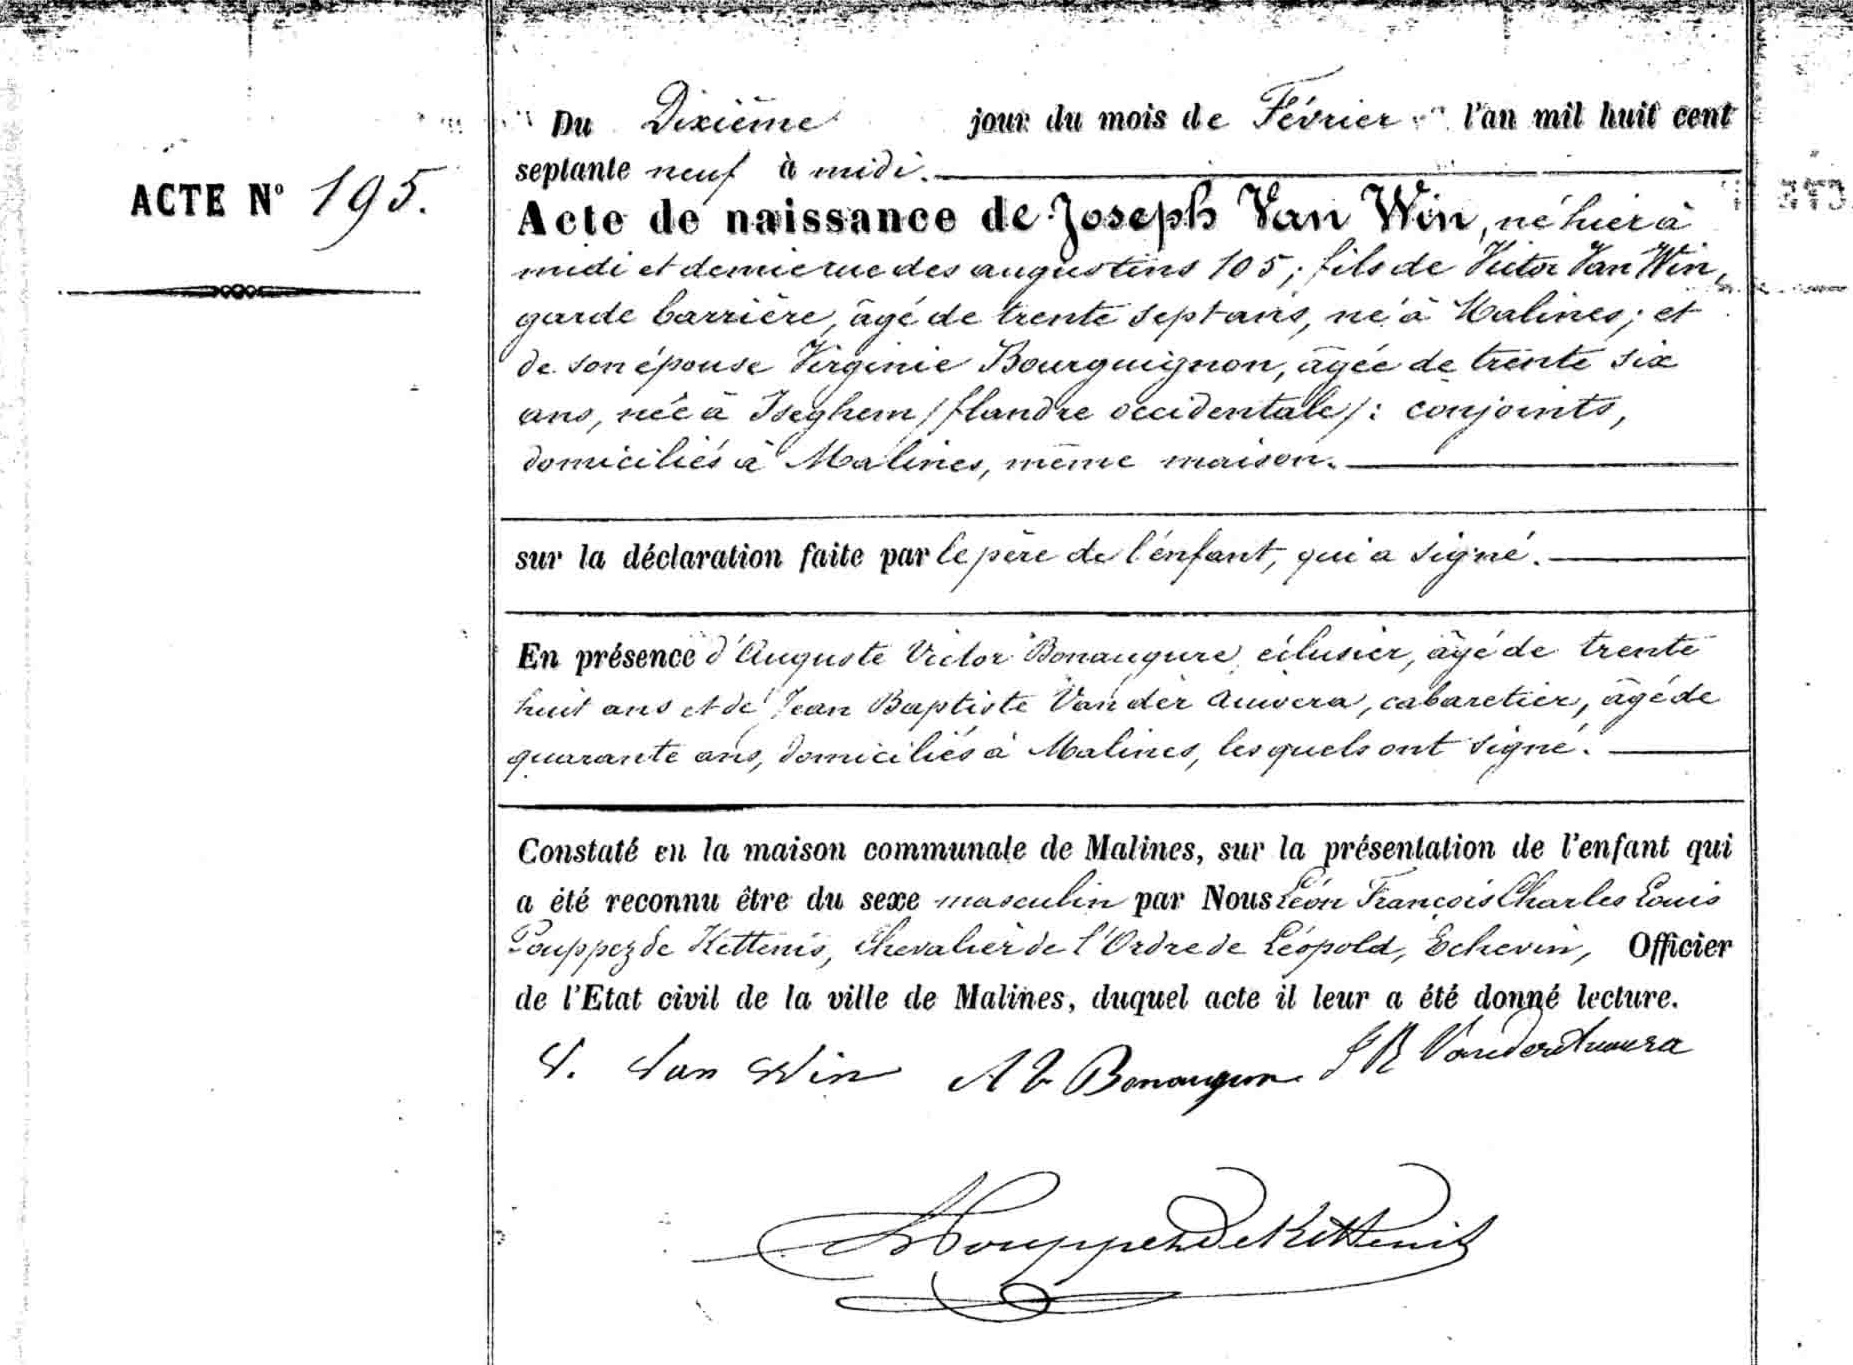 ACTE N° 195.
Du Dixième jour du mois de Février l'an mil huit cent
septante neuf à midi.
Acte de naissance de Joseph Van Win, né hier à
midi et demie rue des augustins 105; fils de Victor Van Win,
garde barrière, âgé de trente sept ans, né à Malines; et
de son épouse Virginie Bourguignon, âgée de trente six
ans, née à Iseghem /flandre occidentale/: conjoints,
domiciliés à Malines, même maison.
sur la déclaration faite par le père de l'énfant, qui a signé.
En présence d'Auguste Victor Bonaugure éclusier, âgé de trente
huit ans et de Jean Baptiste Van der Auwera, cabaretier, âgé de
quarante ans, domiciliés à Malines, lesquels ont signé.
Constaté en la maison communale de Malines, sur la présentation de l'enfant qui
a été reconnu être du sexe masculin par Nous Léon François Charles Louis
Pouppez de Kettenis, Chevalier de l'Ordre de Léopold, Echevin, Officier
de l'Etat civil de la ville de Malines, duquel acte il leur a été donné lecture.
V. Van Win A V Bonaugure J B Vander Auwera
Pouppez de Kettenis